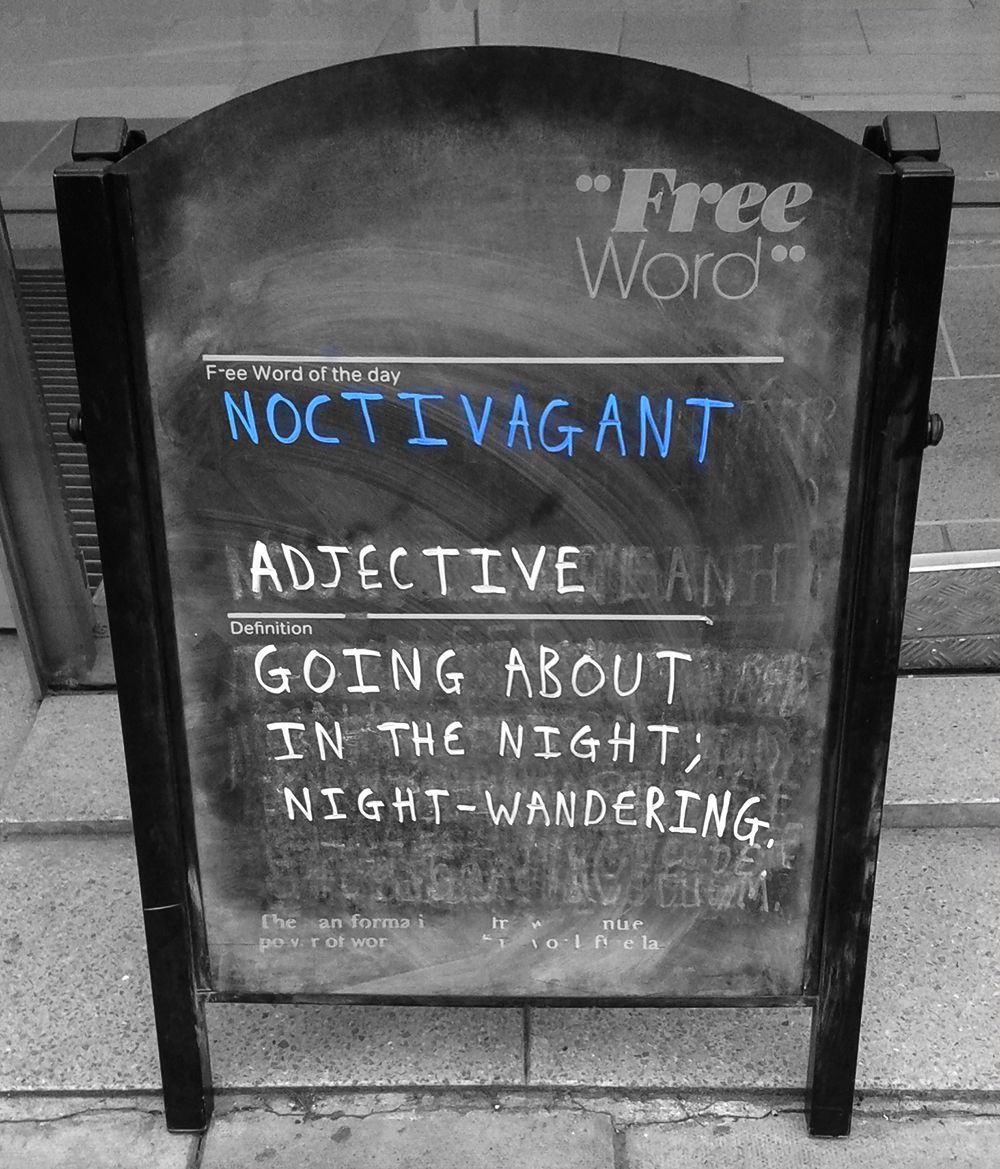 "Free
Word"
Free Word of the day
NOCTIVAGANT
ADJECTIVE
Definition
GOING ABOUT
IN THE NIGHT;
NIGHT-WANDERING.